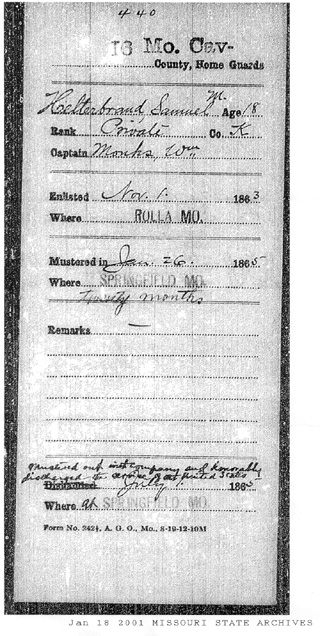 440
16 Mo. Cav-
County, Home Guards
Helterbrand Samuel M. Age 18
Rank Private Co. K
Captain Monks, Wm
Enlisted Nov. 1. 1863
Where ROLLA MO.
Mustered in Jan. 26. 1865
Where SPRINGFIELD MO.
Twenty months
Remarks —
Mustered out with company and honorably
discharged United States
Disbanded July 1 1865
Where at SPRINGFIELD MO.
Form No. 242½, A. G. O., Mo., 8-19-12-10M
Jan 18 2001 MISSOURI STATE ARCHIVES